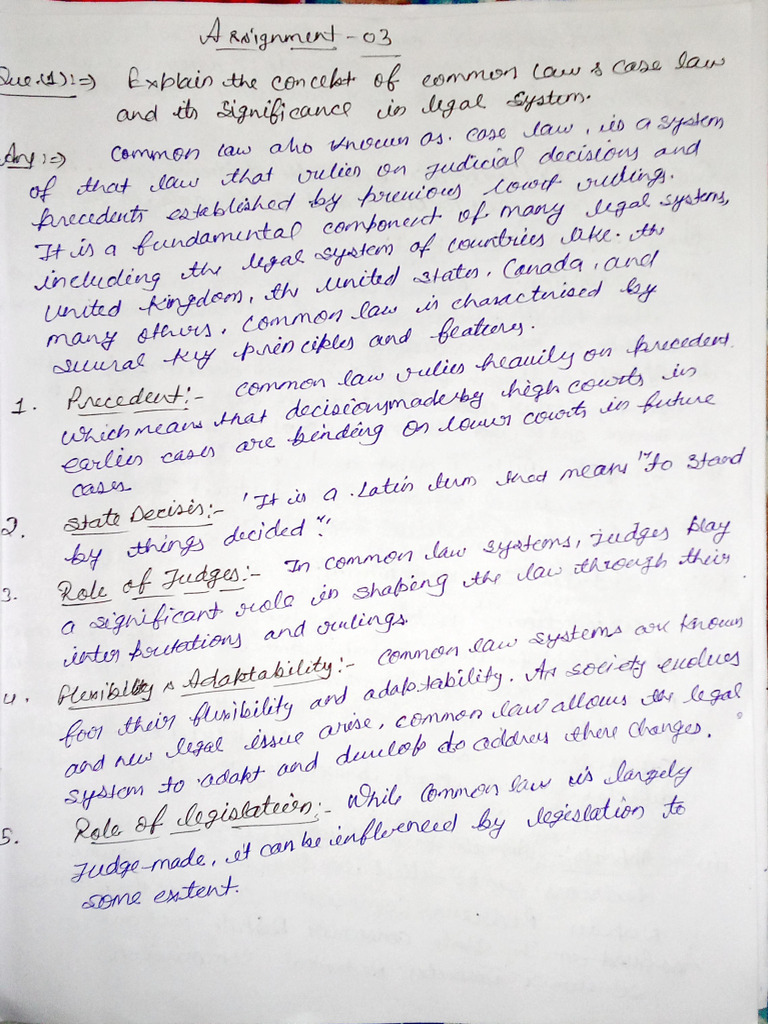 Assignment - 03
Que.(1):=> Explain the concept of common law & case law
and its significance in legal system.
Ans:=> Common law also known as. case law, is a system
of that law that relies on judicial decisions and
precedents established by previous court rulings.
It is a fundamental component of many legal systems,
including the legal system of countries like. the
United Kingdom, the United States, Canada, and
many others. Common law is characterised by
several key principles and features.
1. Precedent:- Common law relies heavily on precedent.
which means that decisions made by high courts in
earlier cases are binding on lower courts in future
cases
2. State Decisis:- 'It is a Latin term that means "to stand
by things decided".'
3. Role of Judges:- In common law systems, judges play
a significant role in shaping the law through their
inter pretations and rulings.
4. Flexibility & Adaptability:- Common law systems are known
foor their flexibility and adaptability. As society evolves
and new legal issue arise, common law allows the legal
system to adapt and develop to address there changes.
5. Role of legislation:- While common law is largely
Judge-made, it can be influenced by legislation to
some extent.